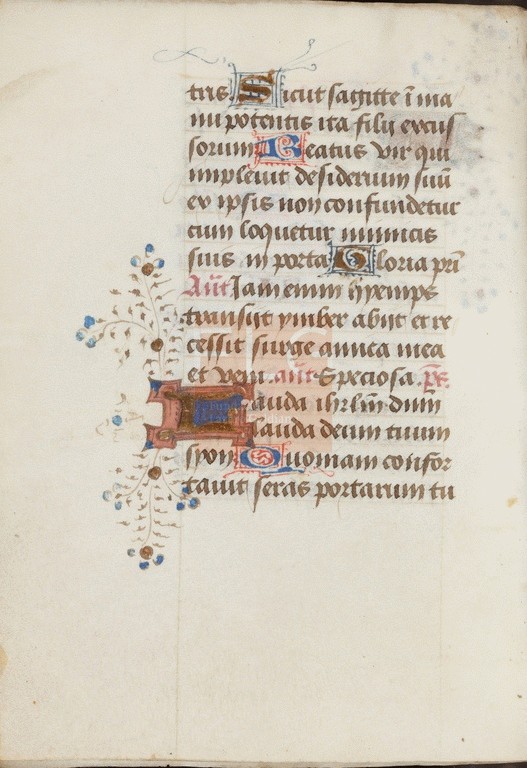 tris. Sicut sagitte ī ma
nu potentis ita filij excus
sorum Beatus vir qui
impleuit desiderium suū
ex ipsis non confundetur
cum loquetur inimicis
suis in porta Gloria pr̄i
An̄t Iam enim hyemps
transiit ymber abijt et re
cessit surge amica mea
et veni. an̄t Speciosa. p̄s.
Lauda ihr̄lm̄ dnm̄
lauda deum tuum
syon Quoniam confor
tauit seras portarum tu